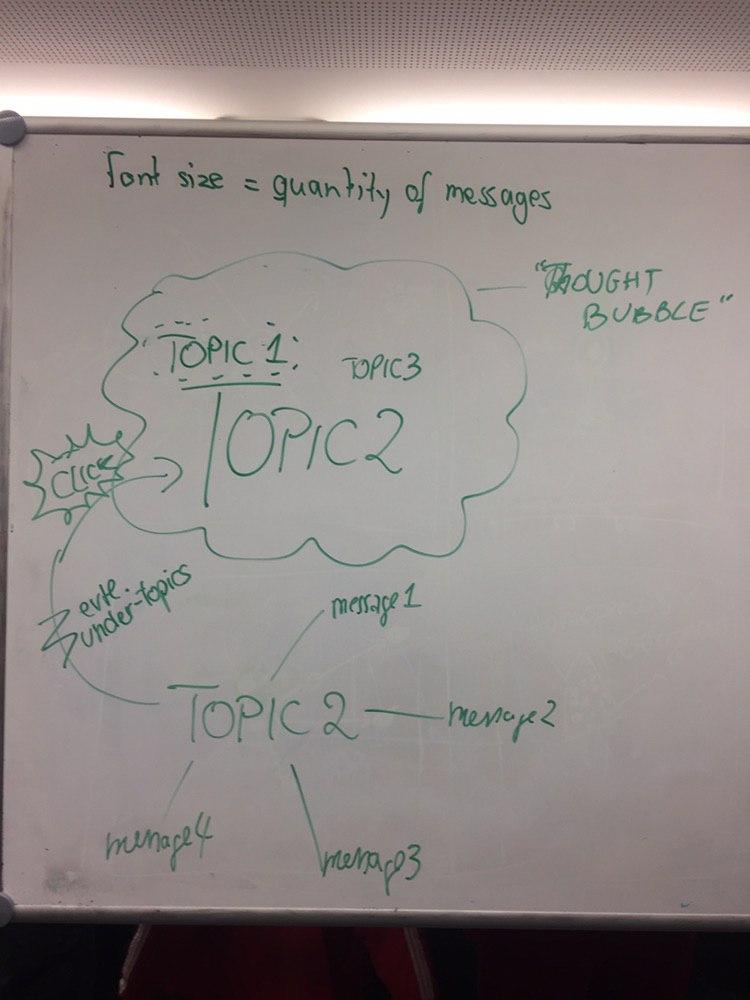 font size = quantity of messages
"THOUGHT
BUBBLE"
TOPIC 1
TOPIC3
TOPIC2
CLICK
evte.
under-topics
message1
TOPIC 2
message2
message4
message3